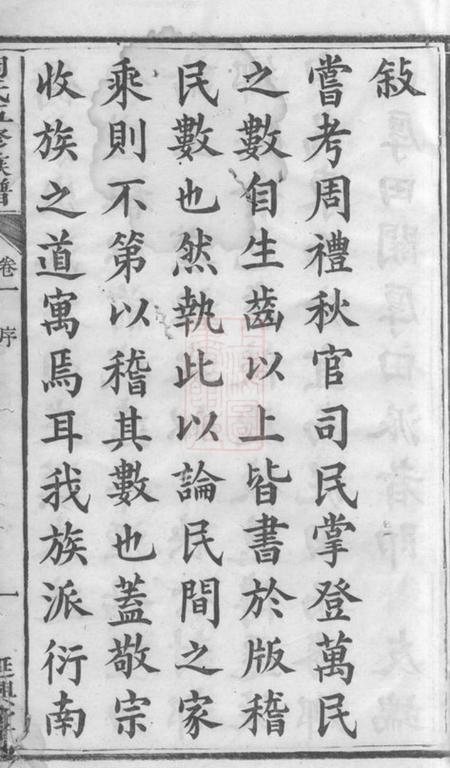 敍
嘗考周禮秋官司民掌登萬民
之數自生齒以上皆書於版稽
民數也然執此以論民間之家
乘則不第以稽其數也蓋敬宗
收族之道寓焉耳我族派衍南
氏五修族譜
卷一
序
一